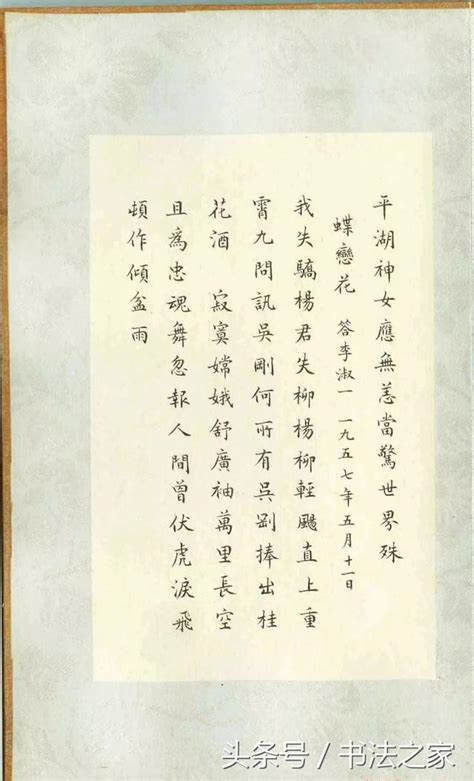 平湖神女應無恙當驚世界殊
蝶戀花 答李淑一 一九五七年五月十一日
我失驕楊君失柳楊柳輕颺直上重
霄九問訊吳剛何所有吳剛捧出桂
花酒 寂寞嫦娥舒廣袖萬里長空
且為忠魂舞忽報人間曾伏虎淚飛
頓作傾盆雨
头条号 / 书法之家